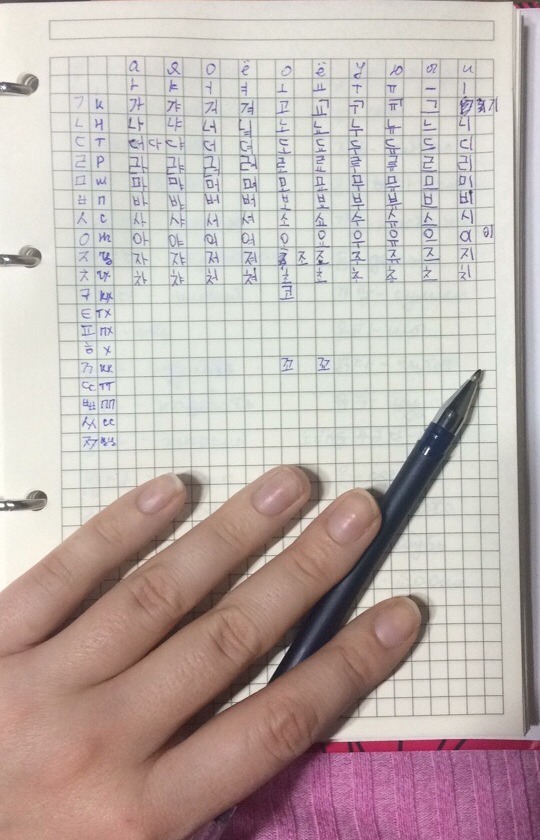 а я о ё о ё у ю ы и
ㅏ ㅑ ㅓ ㅕ ㅗ ㅛ ㅜ ㅠ ㅡ ㅣ
ㄱ к 가 갸 거 겨 고 교 구 규 그 기
ㄴ н 나 냐 너 녀 노 뇨 누 뉴 느 니
ㄷ т 더 다 댜 더 뎌 도 됴 두 듀 드 디
ㄹ р 라 랴 러 려 로 료 루 류 르 리
ㅁ м 마 먀 머 며 모 묘 무 뮤 므 미
ㅂ п 바 뱌 버 벼 보 뵤 부 뷰 브 비
ㅅ с 사 샤 서 셔 소 쇼 수 슈 스 시
ㅇ 아 야 어 여 오 요 우 유 으 이
ㅈ 자 쟈 저 져 조 죠 주 쥬 즈 지
ㅊ 차 챠 처 쳐 초 쵸 추 츄 츠 치
ㅋ кх 코
ㅌ тх
ㅍ пх
ㅎ х
ㄲ кк 꼬 꾜
ㄸ тт
ㅃ пп
ㅆ сс
ㅉ